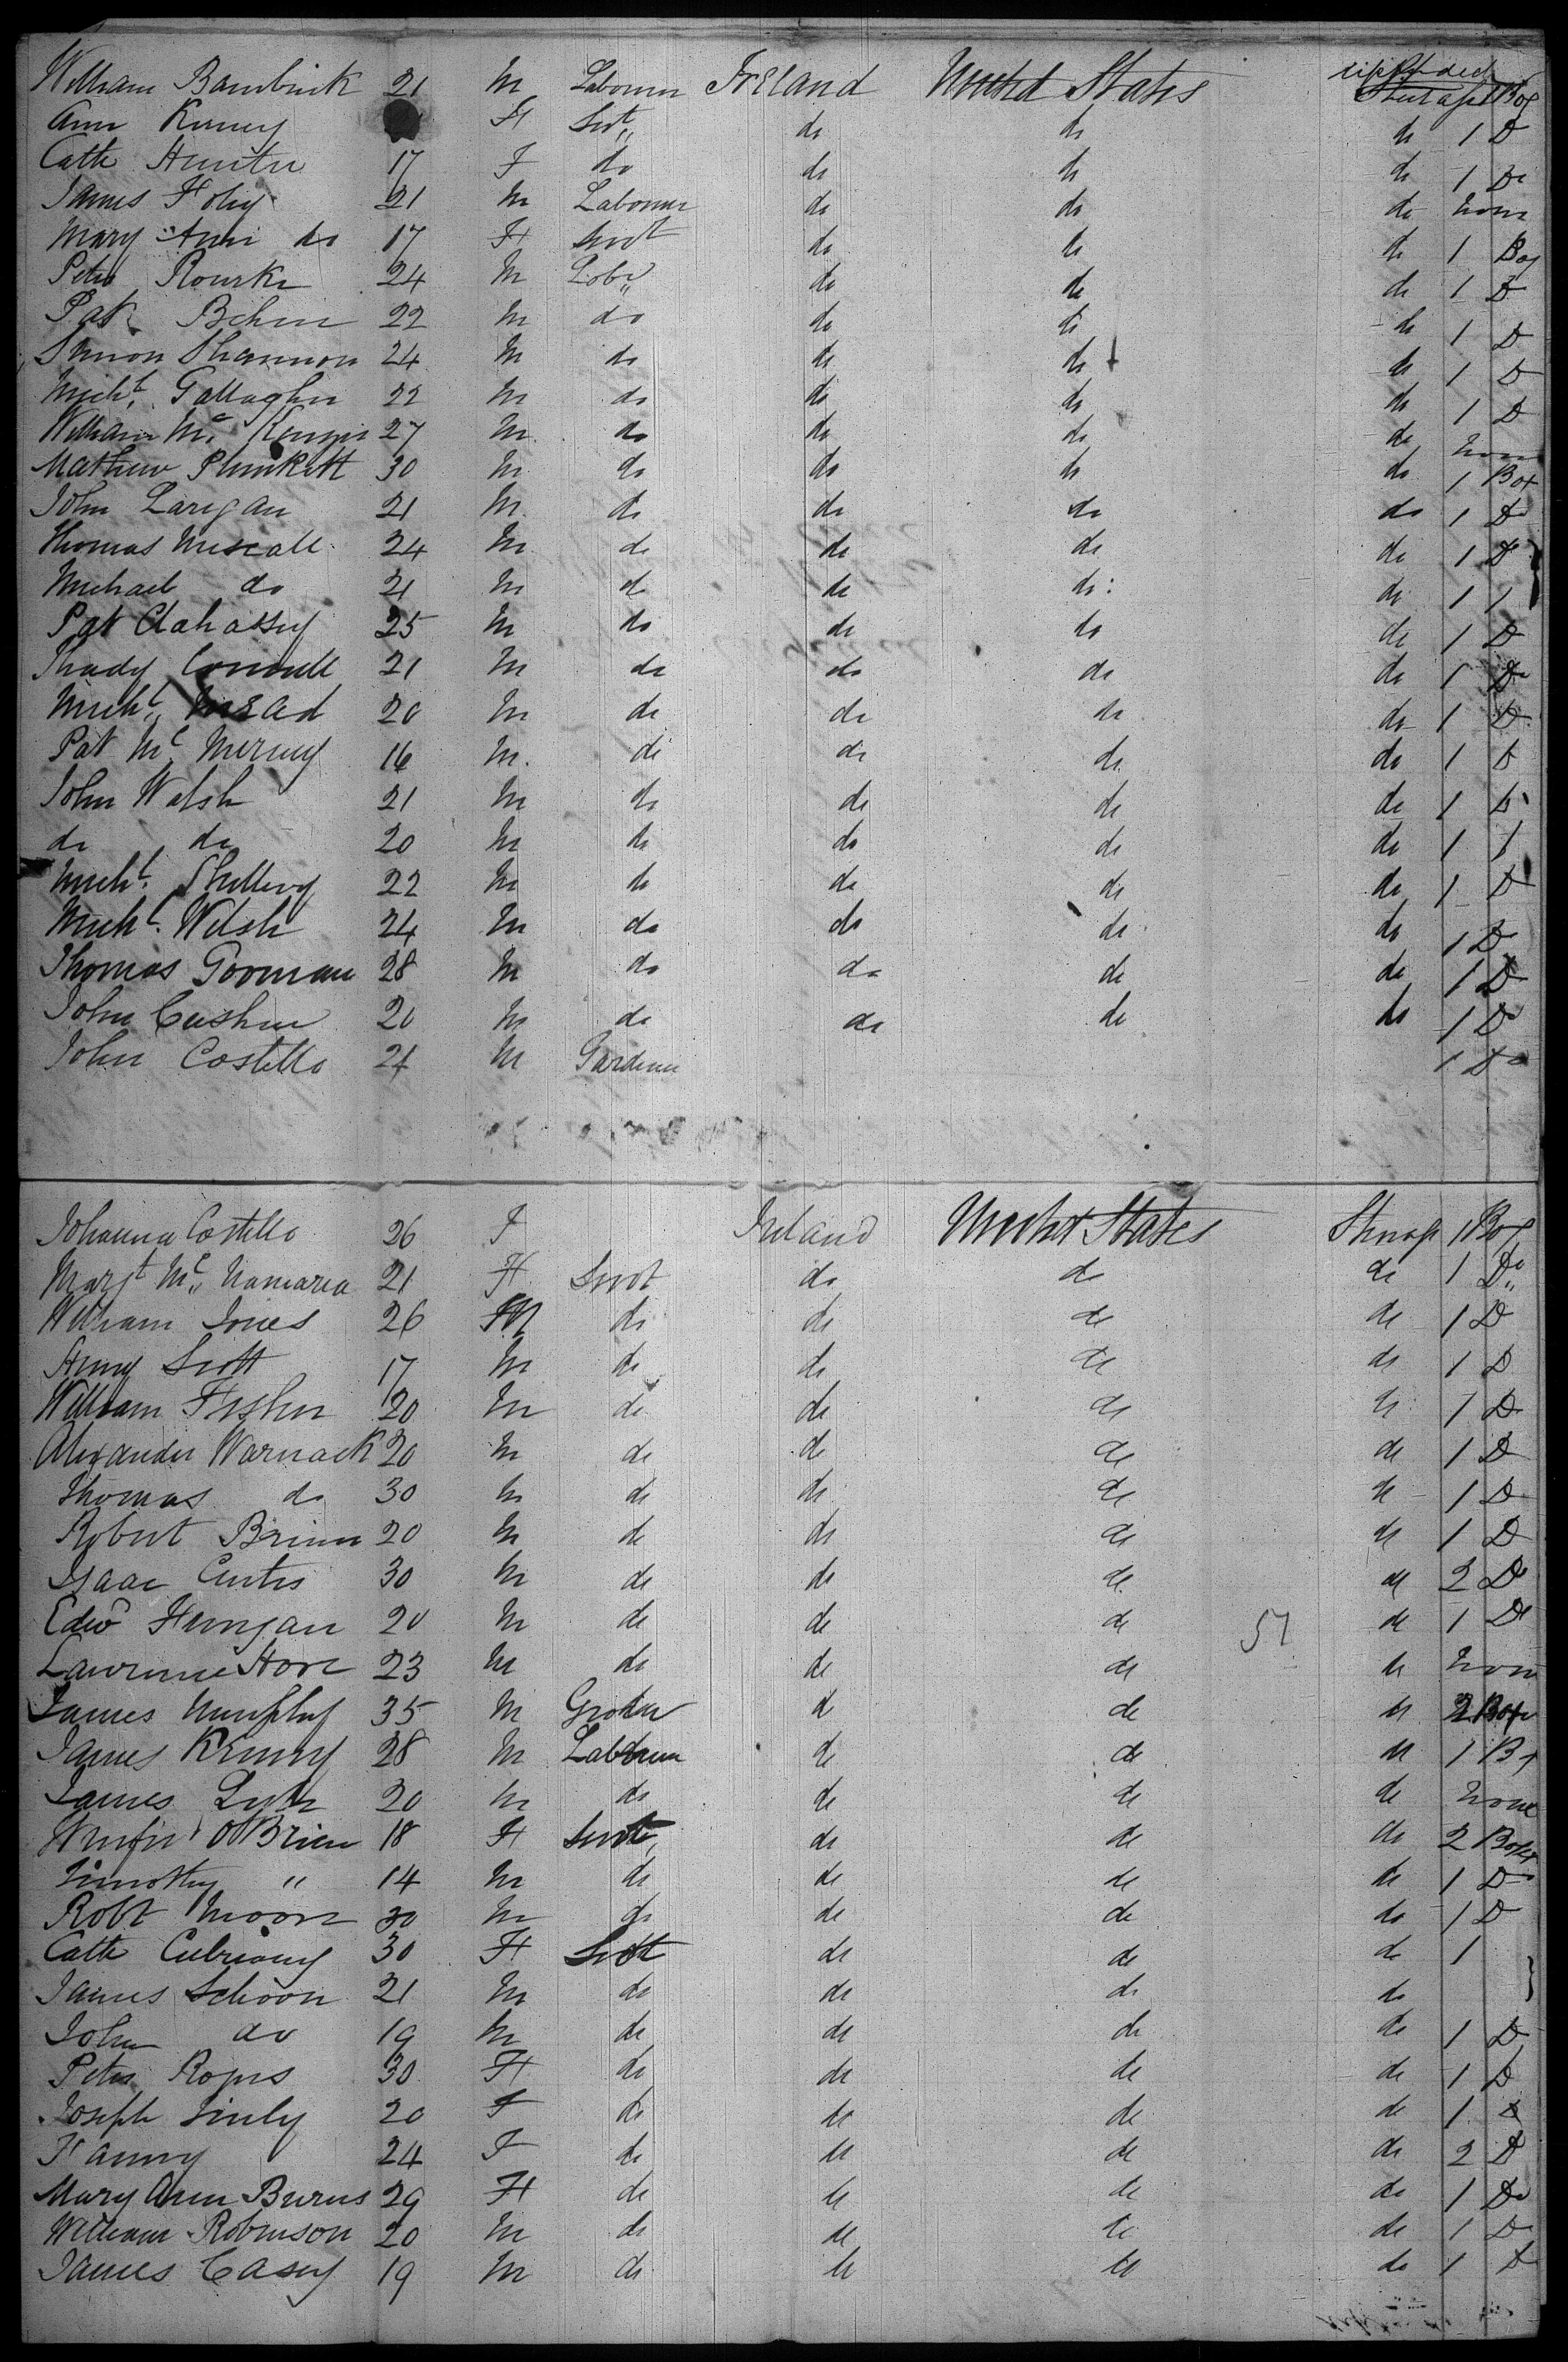 William Bambrick 21 M Labourer Ireland United States Steerage 1 Box
Ann F Svt,, do do do 1 D
Cath Hunter 17 F do do do do 1 Do
James Foley 21 M Labourer do do do none
Mary Ann do 17 F Servt do do do 1 Box
Peter Rourke 24 M Labr,, do do do 1 D
Pat Behan 22 M do do do do 1 D
Simon Shannon 24 M do do do do 1 D
Michl. Gallagher 22 M do do do do 1 D
William Mc 27 M do do do do none
Mathew Plunkett 30 M do do do do 1 Box
John Larigan 21 M do do do do 1 Do
Thomas 24 M do do do do 1 D
Michael do 21 M do do do do 1 1
Pat Clahassey 25 M do do do do 1 D
Thady 21 M do do do do 1 Do
Michl,, Mead 20 M do do do do 1 D
Pat Mc 16 M do do do do 1 D
John Walsh 21 M do do do do 1 D
do do 20 M do do do do 1 1
Michl. 22 M do do do do 1 D
Michl. Welsh 24 M do do do do 1 D
Thomas Gorman 28 M do do do do 1 D
John Cushen 20 M do do do do 1 Do
John Costello 24 M Gardener 1 Do
Johanna Costello 26 F Ireland United States Steerage 1 Box
Margt Mc,, Namara 21 F Servt do do do 1 Do,,
William Jones 26 M do do do do 1 D
Henry Scott 17 M do do do do 1 D
William Fisher 20 M do do do do 1 D
Alexander Warnack 20 M do do do do 1 D
Thomas do 30 M do do do do 1 D
Robert 20 M do do do do 1 D
Isaac Curtis 30 M do do do do 2 Do
Edwd 20 M do do do 1 Do
57
Lawrence Hore 23 M do do do do none
James Murphy 35 M do do do 2 Box
James Kenny 28 M Labourer do do do 1 Bx
James 20 M do do do do none
O'Brien 18 F Servt, do do do 2 Boxes
Timothy " 14 M do do do do 1 Do
Robt Moore 30 M do do do do 1 D
Cath 30 F Servt do do do 1
James Schoon 21 M do do do do
John do 19 M do do do do 1 D
Peter 30 F do do do do 1 D
Joseph 20 F do do do do 1 D
Fanny 24 F do do do do 2 D
Mary Ann Burns 29 F do do do do 1 Do
William Robinson 20 M do do do do 1 D
James Casey 19 M do do do do 1 D